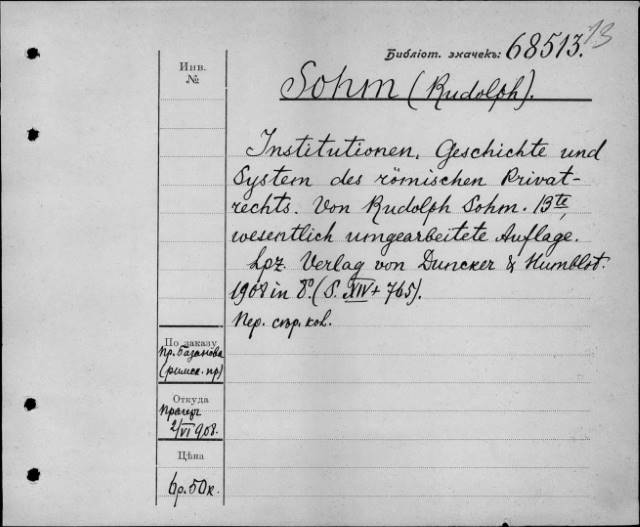 Библіот. значекъ: 68513. 13
Инв.
№
Sohm (Rudolph).
Institutionen, Geschichte und
System des römischen Privat-
rechts. Von Rudolph Sohm. 13te,
wesentlich umgearbeitete Auflage.
Lpz. Verlag von Duncker & Humblot.
1908 in 8º. (S. XIV + 765).
Пер.
По заказу
пр. Базанова
(римск. пр)
Откуда
2/VI 908.
Цѣна
6р. 50к.